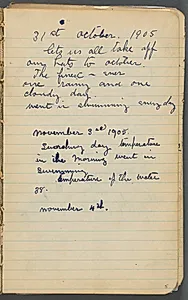 31st october. 1905
lets us all take off
our hats to october.
The finest - ever
one rainy and one
cloudy day
went in swimming everyday
november 3rd 1905.
Scorching day temperature
in the morning went in
Swimming
temperature of the water
58.
november 4th.